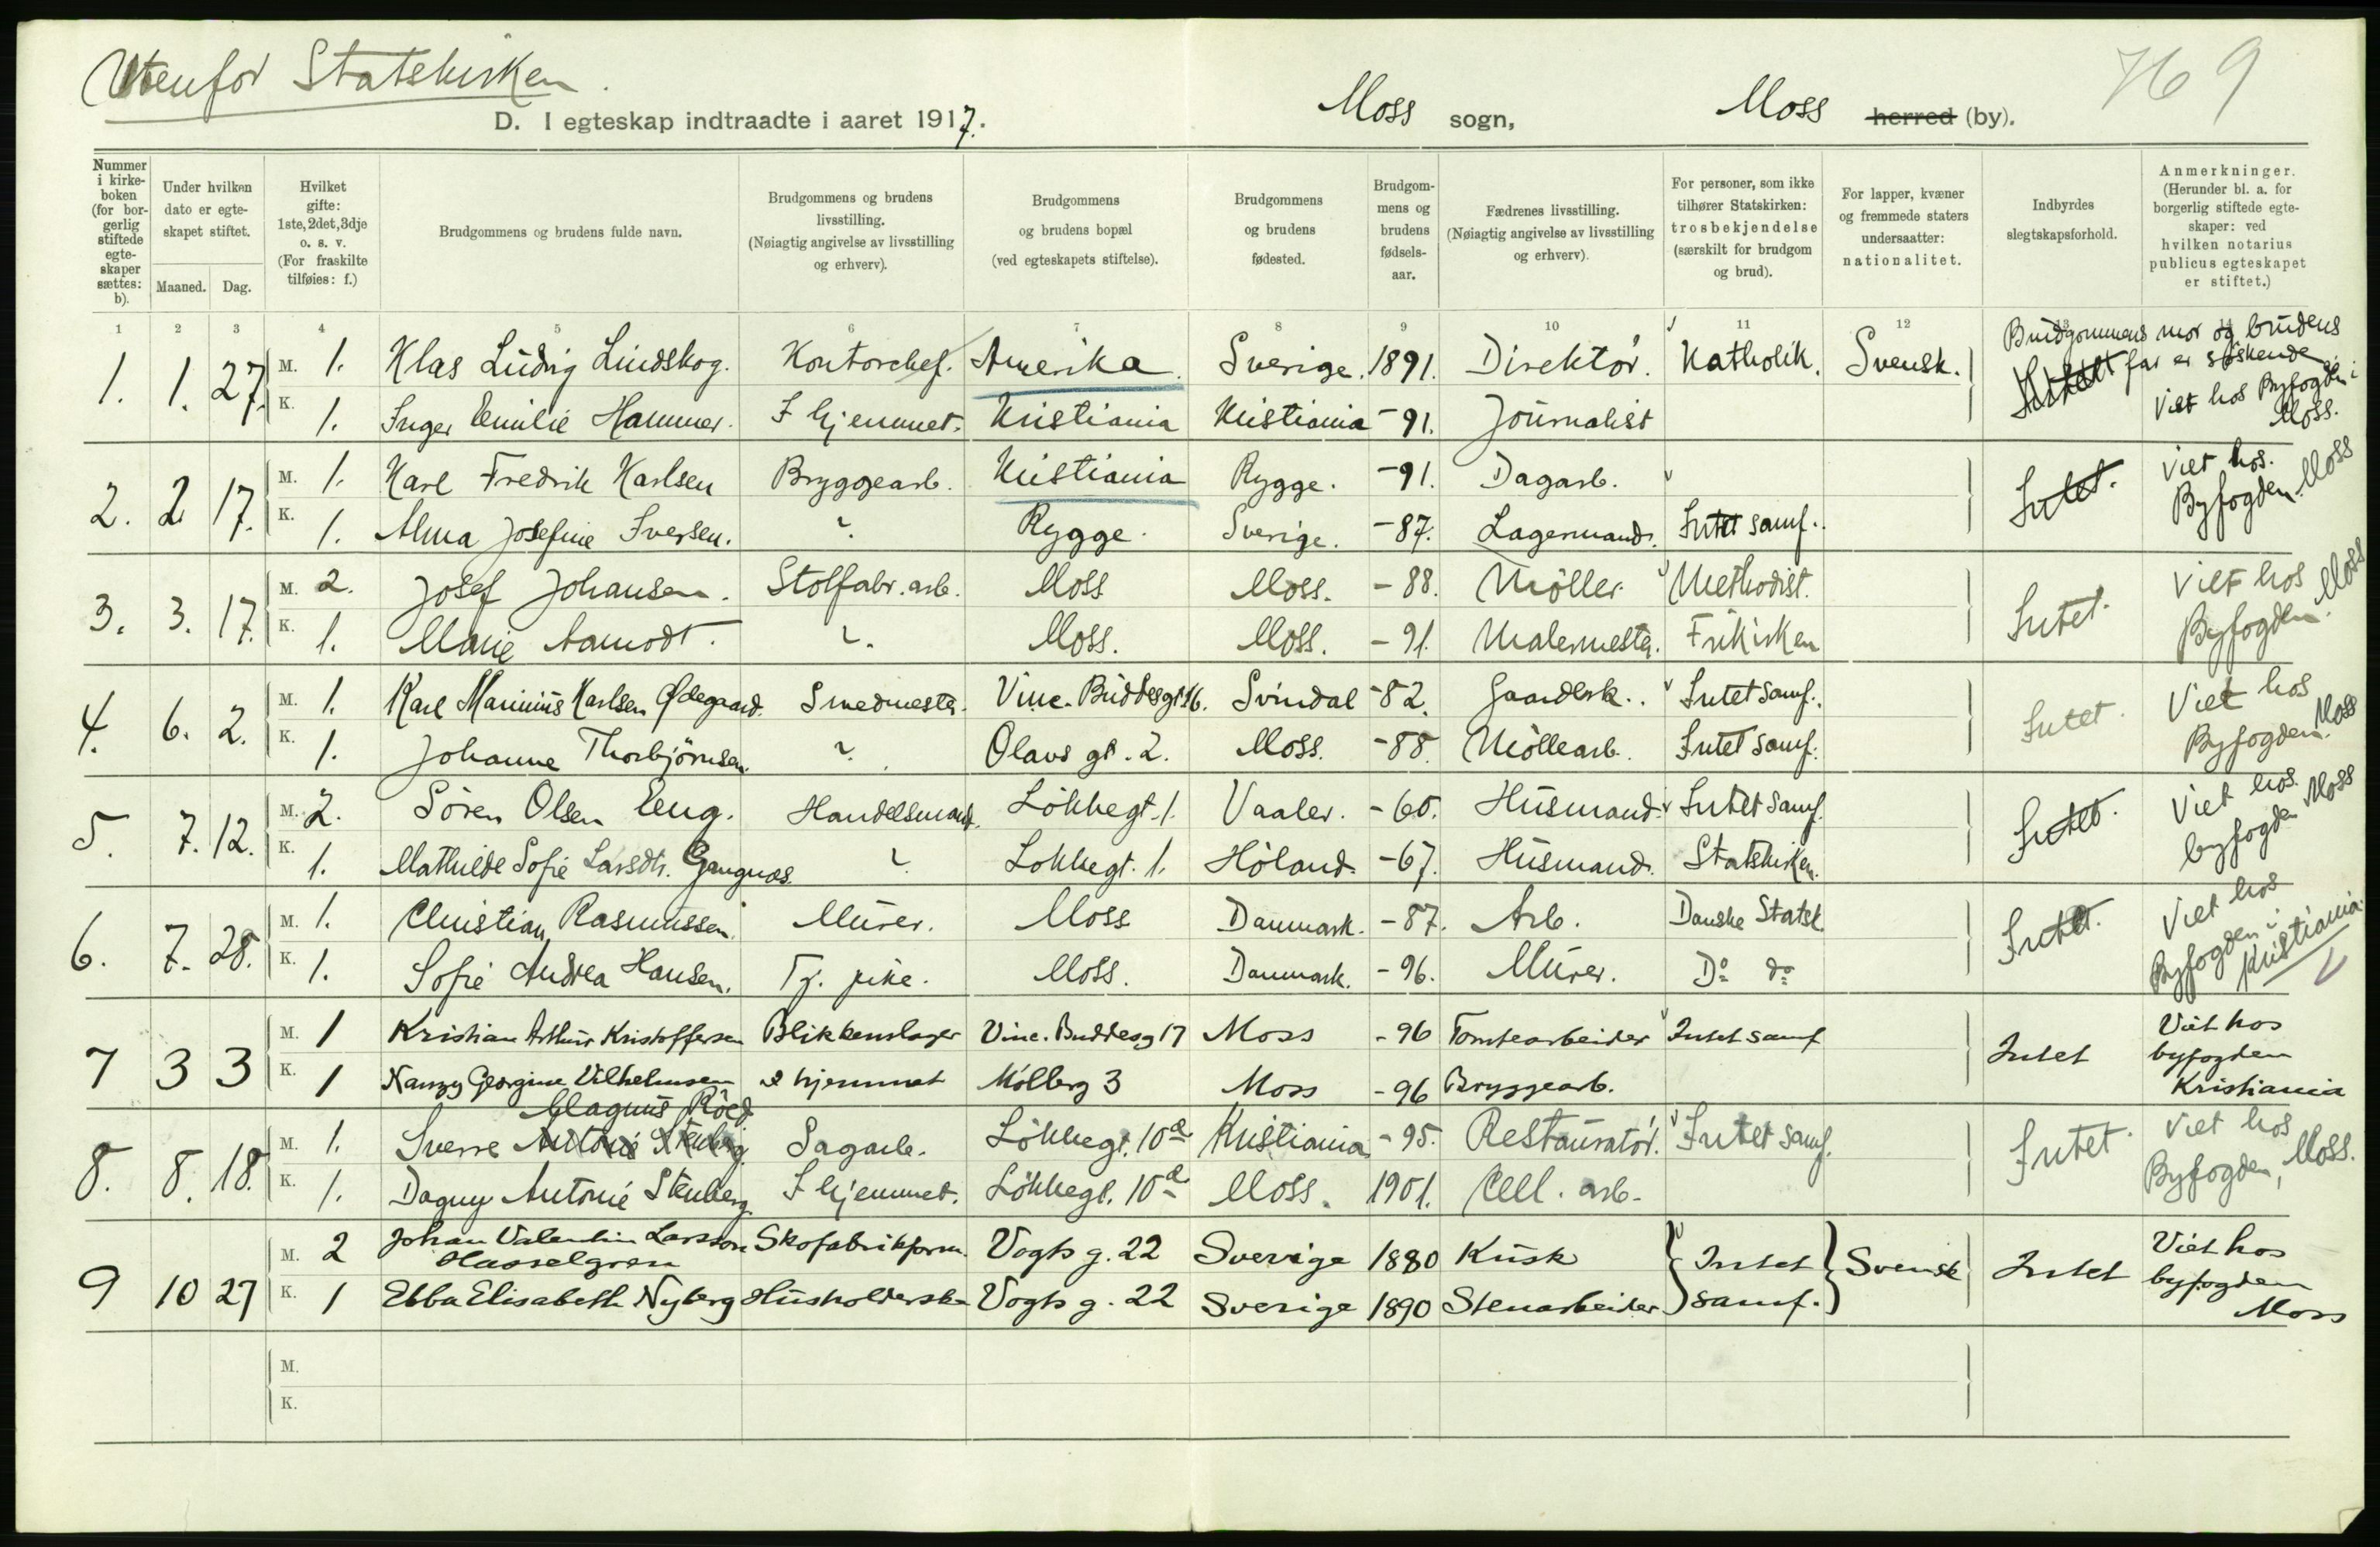 Utenfor Statskirken.
769
D. I egteskap indtraadte i aaret 1917. Moss sogn, Moss herred (by).
Nummer i kirkeboken (for borgerlig stiftede egteskaper sættes: b).
Under hvilken dato er egteskapet stiftet.
Maaned. Dag.
Hvilket gifte: 1ste, 2det, 3dje o. s. v. (For fraskilte tilføies: f.)
Brudgommens og brudens fulde navn.
Brudgommens og brudens livsstilling. (Nøiagtig angivelse av livsstilling og erhverv).
Brudgommens og brudens bopæl (ved egteskapets stiftelse).
Brudgommens og brudens fødested.
Brudgommens og brudens fødselsaar.
Fædrenes livsstilling. (Nøiagtig angivelse av livsstilling og erhverv).
For personer, som ikke tilhører Statskirken: trosbekjendelse (særskilt for brudgom og brud).
For lapper, kvæner og fremmede staters undersaatter: nationalitet.
Indbyrdes slegtskapsforhold.
Anmerkninger. (Herunder bl. a. for borgerlig stiftede egteskaper: ved hvilken notarius publicus egteskapet er stiftet.)
1 2 3 4 5 6 7 8 9 10 11 12 13 14
1. 1. 27. M. 1. Klas Ludvig Lindskog. Kontorchef. Amerika. Sverige. 1891. Direktör. Katholik. Svensk. Brudgommens mor og brudens far er søskende Viet hos Byfogden i Moss.
K. 1. Inger Emilie Hammer. I hjemmet. Kristiania Kristiania -91. Journalist
2. 2 17. M. 1. Karl Fredrik Karlsen Bryggearb. Kristiania Rygge. -91. Dagarb. Intet. Viet hos. Byfogden. Moss
K. 1. Alma Josefine Iversen. Rygge. Sverige. -87. Lagermand. Intet samf.
3. 3. 17. M. 2. Josef Johansen. Stolfabr. arb. Moss Moss. -88. Möller Methodist. Intet. Viet hos Byfogden. Moss
K. 1. Marie Aamodt. Moss. Moss. -91. Malermester. Frikirken
4. 6. 2. M. 1. Karl Marinius Karlsen Ødegaard. Smedmester. Vinc. Buddesgt 16. Svindal -82. Gaardbrk. Intet samf. Intet. Viet hos Byfogden. Moss
K. 1. Johanne Thorbjörnsen. Olavs gt. 2. Moss. -88. Möllearb. Intet samf.
5. 7. 12. M. 2. Sören Olsen Eng. Handelsmand. Lökkegt. 1. Vaaler. -60. Husmand. Intet samf. Intet. Viet hos. byfogden Moss
K. 1. Mathilde Sofie Larsdtr. Gangnæs. Lökkegt. 1. Höland. -67. Husmand. Statskirken.
6. 7. 28. M. 1. Christian Rasmussen. Murer. Moss Danmark. -87. Arb. Danske Statsk. Intet. Viet hos Byfogden i Kristiania.
K. 1. Sofie Andrea Hansen. Tj. pike. Moss. Danmark. -96. Murer. Do do
7 3 3 M. 1 Kristian Arthur Kristoffersen Blikkenslager Vinc. Buddesg 17 Moss -96 Tomtearbeider Intet samf Intet Viet hos byfogden Kristiania
K. 1 Nanny Georgine Vilhelmsen i hjemmet Mölleg 3 Moss -96 Bryggearb.
Magnus Röed
8. 8. 18. M. 1. Sverre Antonie Stenberg Sagarb. Lökkegt. 10a Kristiania -95. Restauratör. Intet samf. Intet. Viet hos Byfogden, Moss.
K. 1. Dagny Antonie Stenberg. I hjemmet. Lökkegt. 10a Moss. 1901. Cell. arb.
9 10 27 M. 2 Johan Valentin Larsson Hasselgren Skofabrikform. Vogts g. 22 Sverige 1880 Kusk Intet samf. Svensk Intet Viet hos byfogden Moss
K. 1 Ebba Elisabeth Nyberg Husholderske Vogts g. 22 Sverige 1890 Stenarbeider
M.
K.